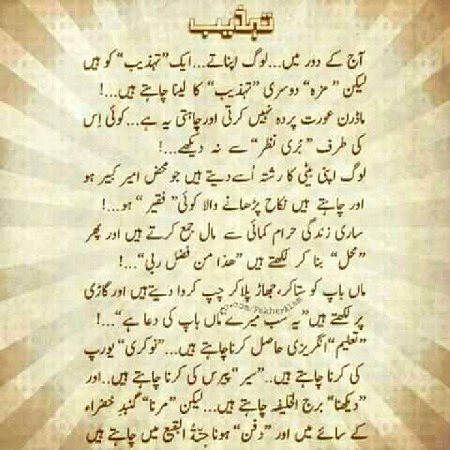 تہذیب
آج کے دور میں...لوگ اپناتے...ایک”تہذیب“کو ہیں
لیکن ”مزہ“ دوسری ”تہذیب“ کا لینا چاہتے ہیں...!
ماڈرن عورت پردہ نہیں کرتی اور چاہتی یہ ہے...کوئی اِس
کی طرف ”بُری نظر“ سے نہ دیکھے...!
لوگ اپنی بیٹی کا رشتہ اُسے دیتے ہیں جو محض امیر کبیر ہو
اور چاہتے ہیں نکاح پڑھانے والا کوئی” فقیر “ ہو...!
ساری زندگی حرام کمائی سے مال جمع کرتے ہیں اور پھر
”محل“ بنا کر لکھتے ہیں ”ھذا من فضل ربی“...!
ماں باپ کو ستا کر،جھاڑ پلا کر چپ کروا دیتے ہیں اور گاڑی
پر لکھتے ہیں”یہ سب میرے ماں باپ کی دعا ہے“...!
”تعلیم“انگریزی حاصل کرنا چاہتے ہیں...”نوکری“ یورپ
کی کرنا چاہتے ہیں..”سیر“ پیرس کی کرنا چاہتے ہیں..اور
”دیکھنا“ برج الخلیفہ چاہتے ہیں...لیکن ”مرنا“ گنبدِ خضراء
کے سائے میں اور ”دفن“ ہونا جنّۃُ البقیع میں چاہتے ہیں
.com/FakherAlam